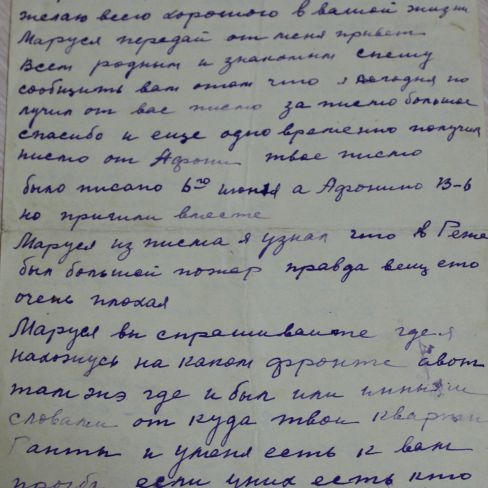 желаю всего хорошого в вашой жизни
Маруся передай от меня привет
Всем родным и знакомым спешу
сообщить вам о том что я сегодня по
лучил от вас письмо за письмо большое
спасибо и еще одно временно получил
письмо от Афони твое письмо
было писано 6го июня а Афонино 13-6
но пришли вместе
Маруся из письма я узнал что в Реже
был большой пожар правда вещ ето
очень плохая
Маруся вы спрашиваите где я
нахожусь на каком фронте авот
там же где и был или иными
словами от куда твои кварти
Ганты и уменя есть к вам
если уних есть кто